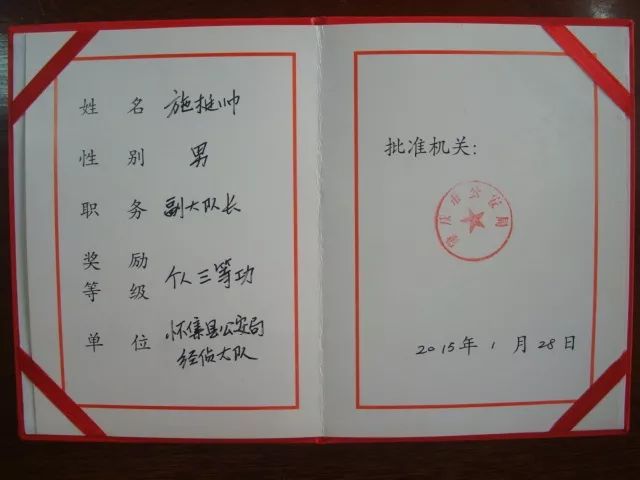 姓 名 施挺帅
性 别 男
职 务 副大队长
奖 励
等 级 个人三等功
单 位 怀集县公安局
经侦大队
批准机关:
肇庆市公安局
2015年 1 月 28 日